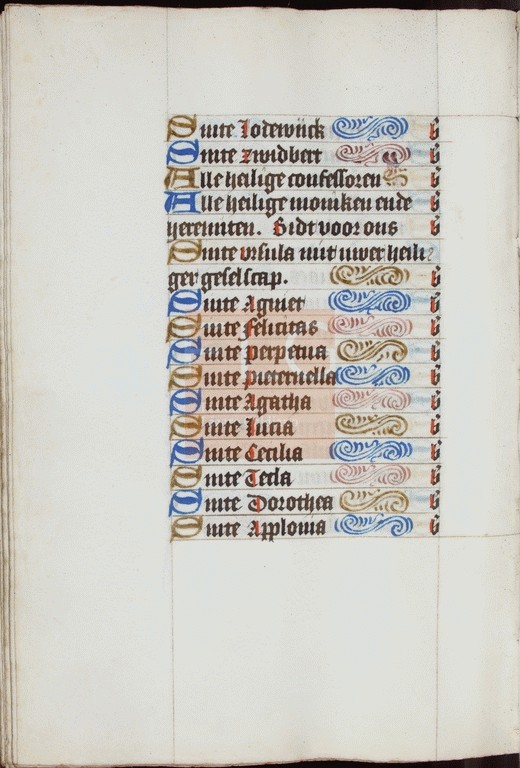 Sinte Lodewijck b
Sinte zwidbert b
Alle heilige confessoren b
Alle heilige moniken ende b
heremiten. Bidt voor ons b
Sinte ursula mit uwer heili b
ger geselscap. b
Sinte Agniet b
Sinte felicitas b
Sinte perpetua b
Sinte pieternella b
Sinte Agatha b
Sinte Lucia b
Sinte Cecilia b
Sinte Tecla b
Sinte Dorothea b
Sinte Applonia b